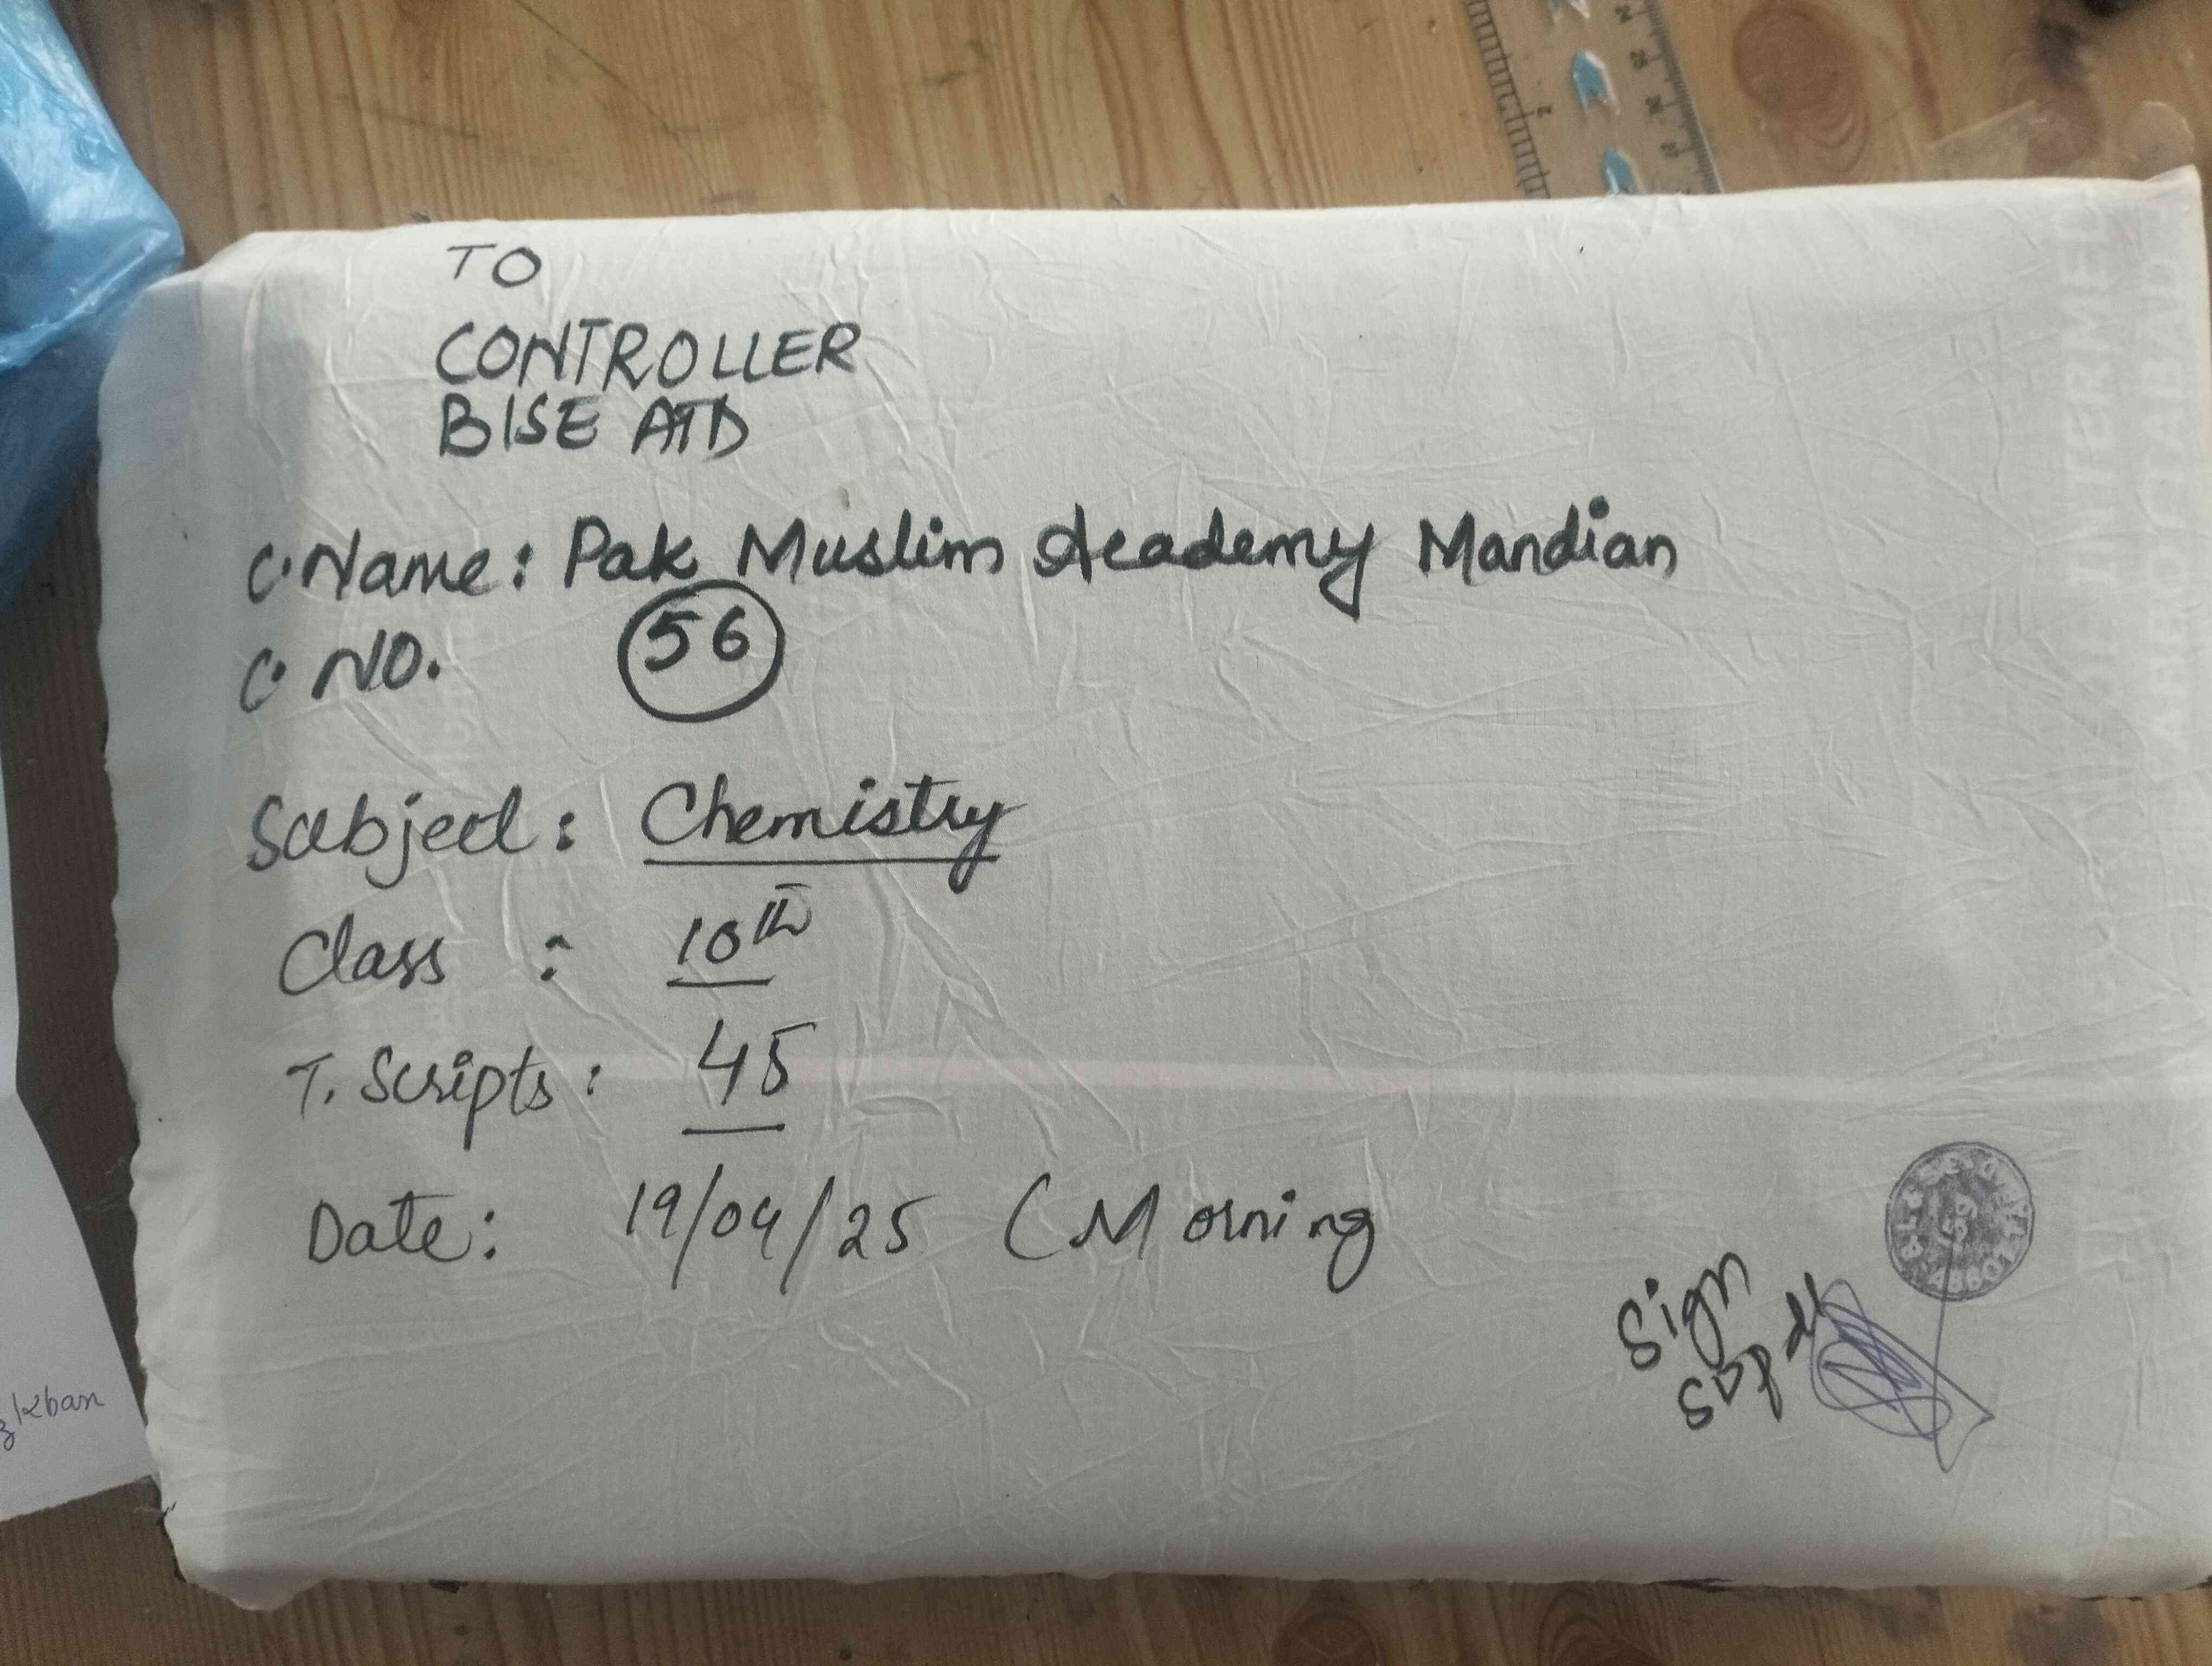 TO
CONTROLLER
BISE ATD
C. Name: Pak Muslim Academy Mandian
C. NO. 56
Subject: Chemistry
Class : 10th
T. Scripts: 45
Date: 19/04/25 (Morning
Sign
Supdtt
INTERMED
ABBOTTABAD